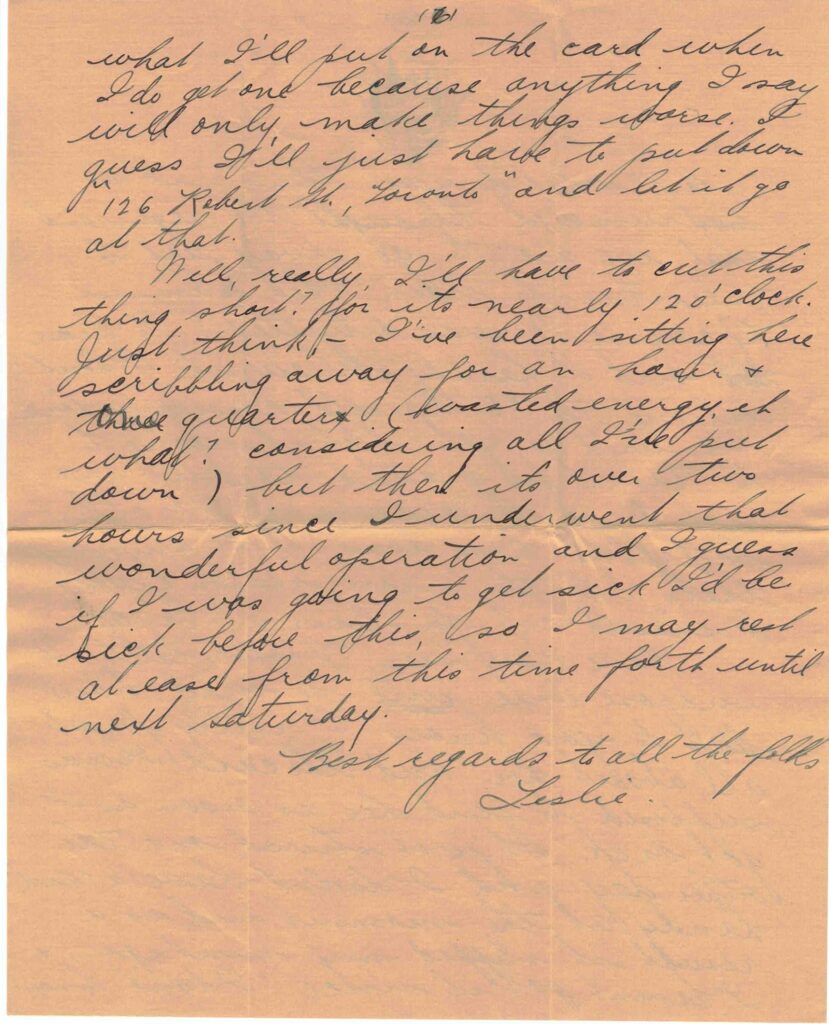 (6)
what I'll put on the card when
I do get one because anything I say
will only make things worse. I
guess I'll just have to put down
"126 Robert St., Toronto" and let it go
at that.
Well, really, I'll have to cut this
thing short? for its nearly 12 o'clock.
Just think, – I've been sitting here
scribbling away for an hour &
quarter (wasted energy, eh
what? considering all I've put
down) but then it's over two
hours since I underwent that
wonderful operation and I guess
if I was going to get sick I'd be
sick before this, so I may rest
at ease from this time forth until
next Saturday.
Best regards to all the folks
Leslie.